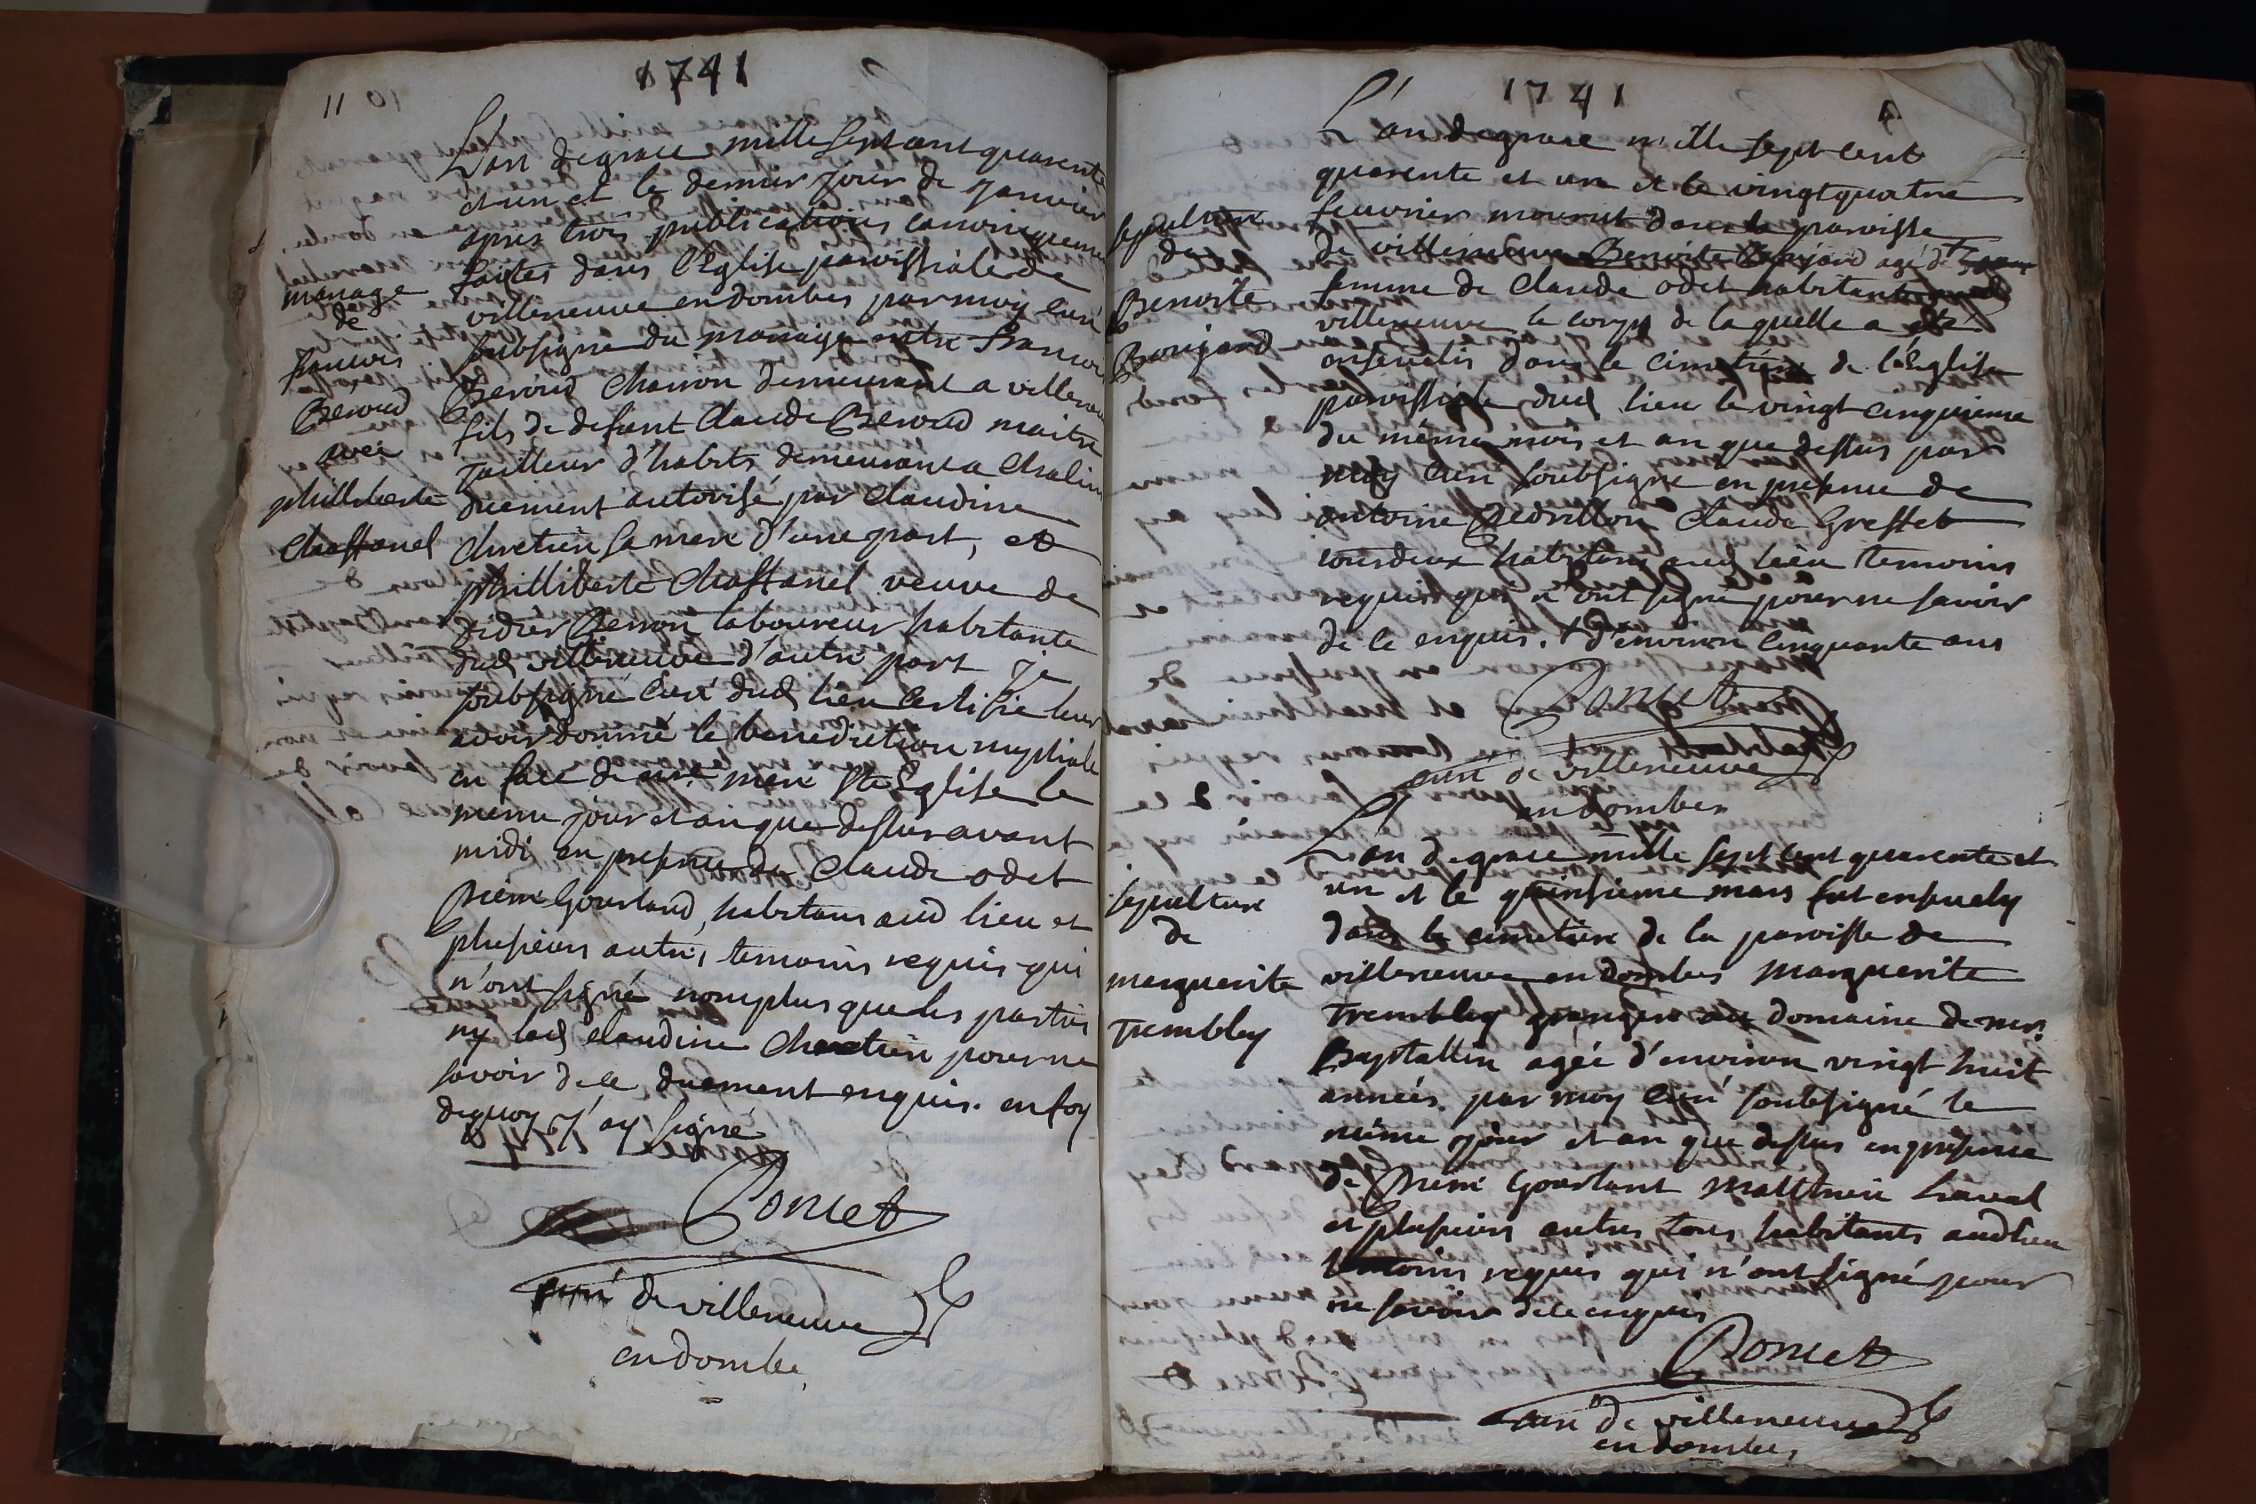 1741
11
L'an de grace mille sept cent quarente
et un et le dernier jour de janvier
apres trois publications canoniquement
faites dans l'Eglise paroissiale de
villeneuve en dombes par moy curé
soubsigné du mariage entre francois
Beroud charron demeurant a villeneuve
fils de defunt Claude Beroud maitre
tailleur d'habits demeurant a
duement autorisé par claudine
chretien sa mere d'une part, et
philliberte Chassanel veuve de
didier laboureur habitante
dud villeneuve d'autre part je
soubsigné curé dud lieu certifie leur
avoir donné le benediction nuptiale
en face de nre mere Ste Eglise le
meme jour et an que dessus avant
midi en presence de Claude odet
pierre Gourland, habitans aud lieu et
plusieurs autres temoins requis qui
n'ont signé nomplus que les parties
ny lad claudine Chretien pour ne
savoir de ce duement enquis. en foy
dequoy j'ay signé
mariage
de
francois
Beroud
avec
philliberte
Chassanel
Poncet
curé de villeneuve
en dombe
1741
L'an de grace mille sept cent
quarente et un et le vingt quatre
feuvrier mourut dans la paroisse
de villeneuve Benoite agé de
femme de Claude odet habitante
villeneuve le corps de laquelle a eté
ensevelis dans le cimetiere de l'Eglise
paroissiale dud lieu le vingt cinquieme
du même mois et an que dessus par
moy curé soubsigné en presence de
antoine Claude Greffet
tous deux habitans aud lieu temoins
requis qui n'ont signé pour ne savoir
de ce enquis. + d'environ cinquante ans
sepulture
de
Benoite
Poncet
curé de villeneuve
en dombes
L'an de grace mille sept cent quarente et
un et le quinsieme mars fut ensevely
dans le cimetiere de la paroisse de
villeneuve en dombes marguerite
Trembley grangere au domaine de mr
agée d'environ vingt huit
années par moy curé soubsigné le
même jour et an que dessus en presence
de pierre Gourlant Matthieu
et plusieurs autres tous habitants aud lieu
temoins requis qui n'ont signé pour
ne savoir de ce enquis
sepulture
de
marguerite
Trembley
Poncet
curé de villeneuve
en dombes